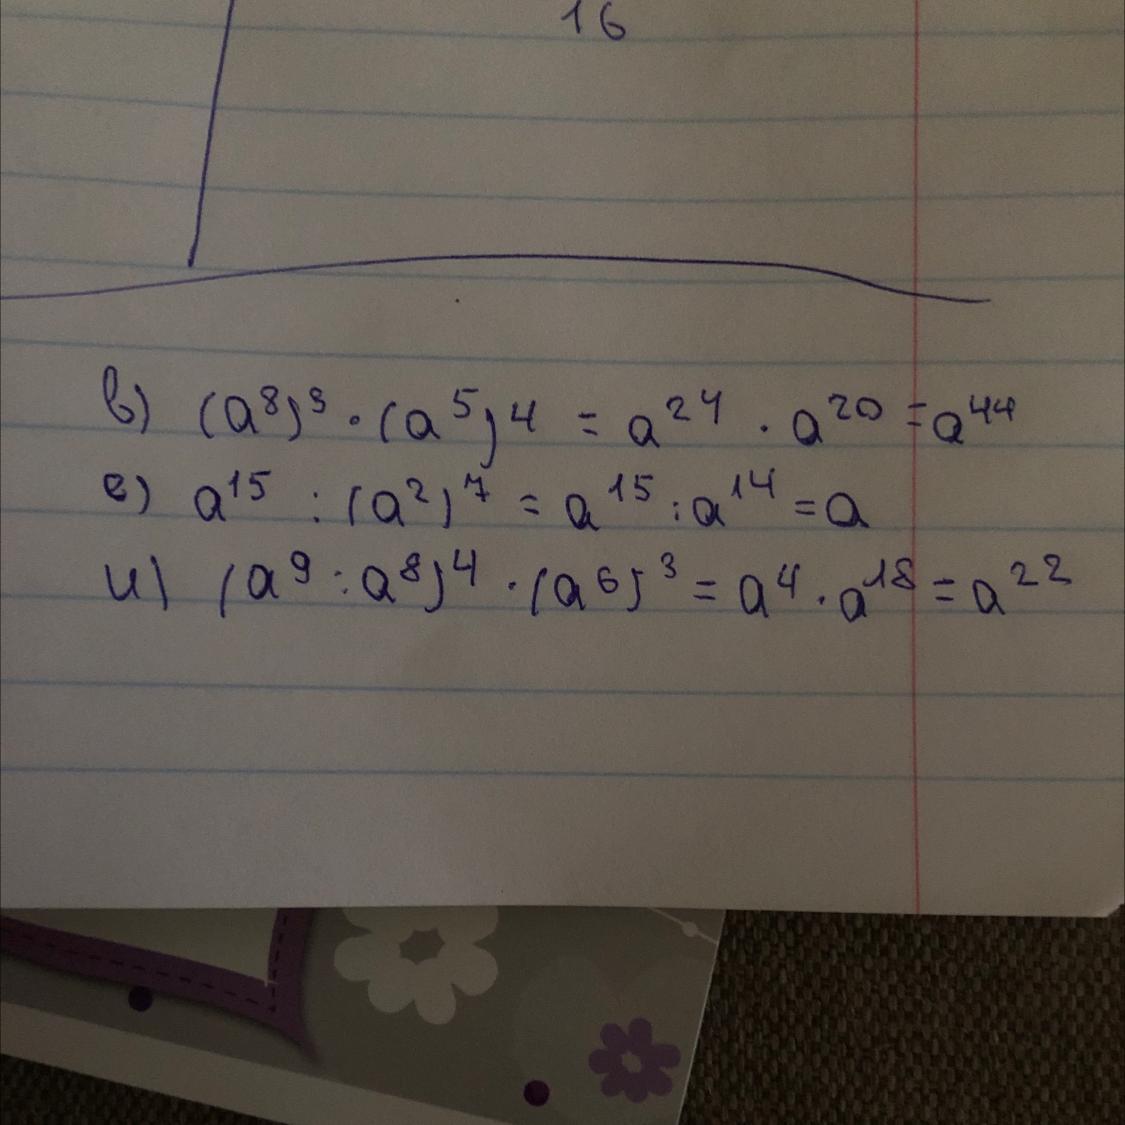 16
в) (a⁸)³ · (a⁵)⁴ = a²⁴ · a²⁰ = a⁴⁴
е) a¹⁵ : (a²)⁷ = a¹⁵ : a¹⁴ = a
и) (a⁹ : a⁸)⁴ · (a⁶)³ = a⁴ · a¹⁸ = a²²